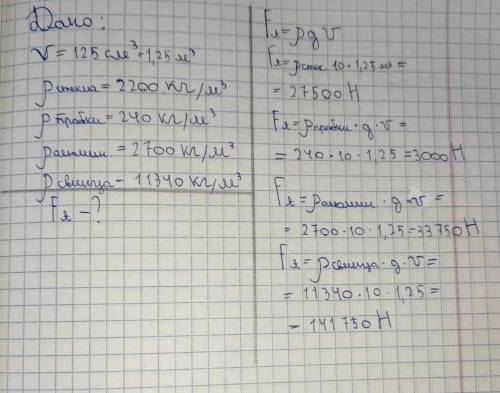 Дано:
V = 125 см³ = 1,25 м³
ρстекла = 2200 кг/м³
ρпробки = 240 кг/м³
ρалюмин = 2700 кг/м³
ρсвинца - 11340 кг/м³
Fа - ?
Fа = ρgV
Fа = ρстек 10 · 1,25 м³ =
= 27500 Н
Fа = ρпробки · g · V =
= 240 · 10 · 1,25 = 3000 Н
Fа = ρалюмин · g · V =
= 2700 · 10 · 1,25 = 33750 Н
Fа = ρсвинца · g · V =
= 11340 · 10 · 1,25 =
= 141750 Н